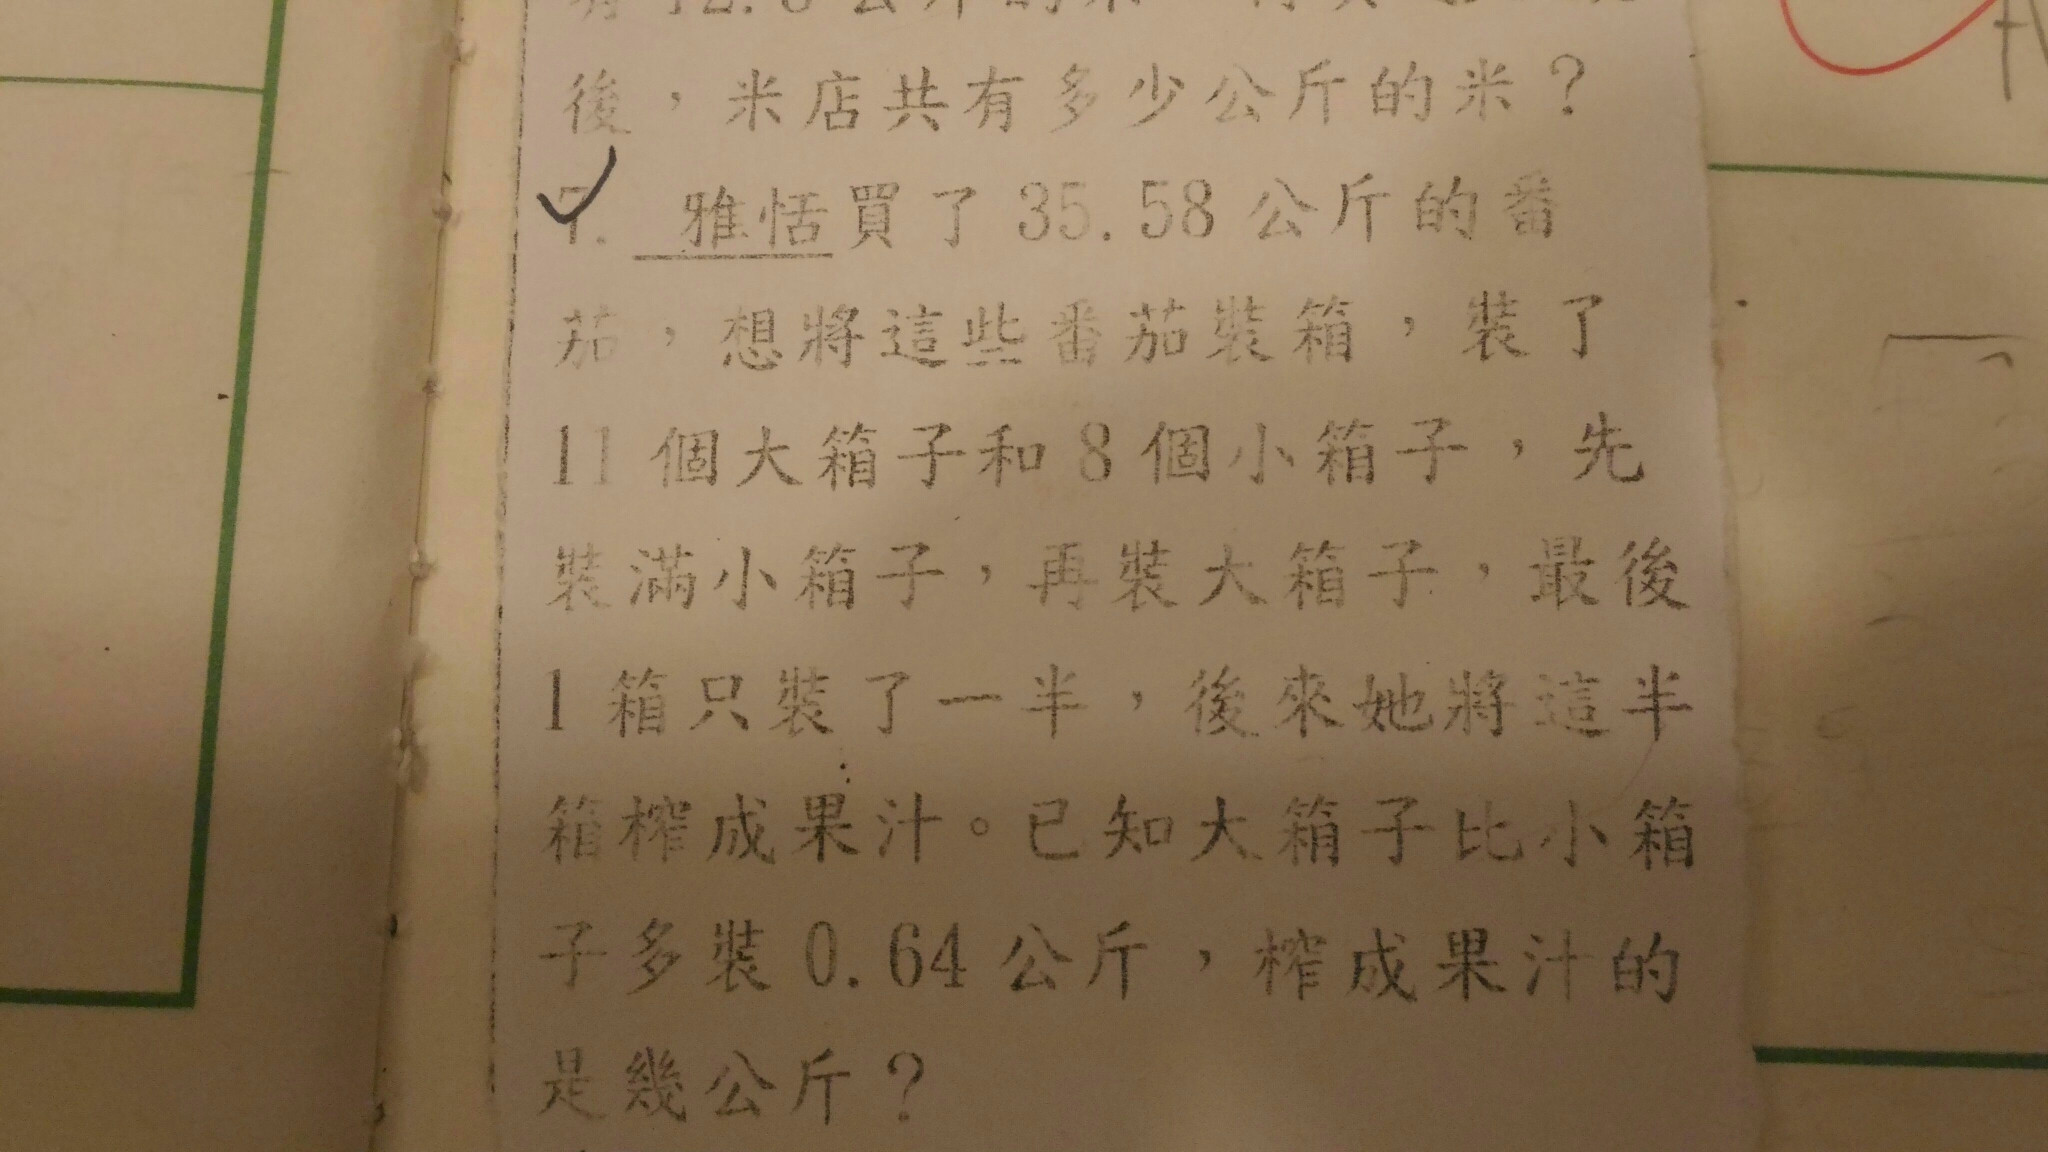 後，米店共有多少公斤的米？
7. 雅恬買了 35.58 公斤的番
茄，想將這些番茄裝箱，裝了
11 個大箱子和 8 個小箱子，先
裝滿小箱子，再裝大箱子，最後
1 箱只裝了一半，後來她將這半
箱榨成果汁。已知大箱子比小箱
子多裝 0.64 公斤，榨成果汁的
是幾公斤？